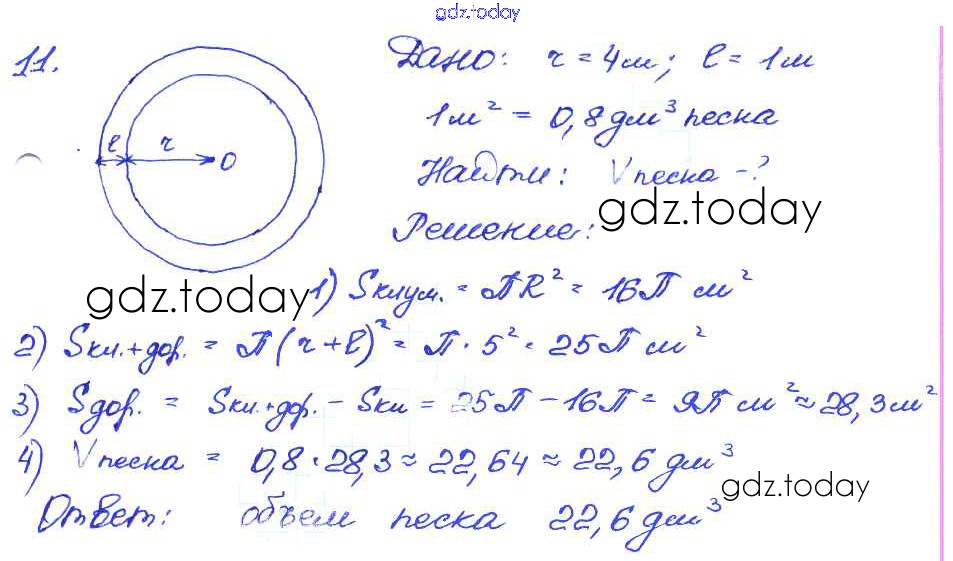 gdz.today
11.
Дано: r = 4м; l = 1м
1м² = 0,8дм³ песка
l r O
Найти: Vпеска - ?
gdz.today
Решение:
gdz.today
1) Sклум. = ПR² = 16П м²
2) Sкл.+дор. = П(r+l)² = П · 5² = 25П м²
3) Sдор. = Sкл.+дор. - Sкл = 25П - 16П = 9П м² ≈ 28,3м²
4) Vпеска = 0,8 · 28,3 ≈ 22,64 ≈ 22,6 дм³
gdz.today
Ответ: объем песка 22,6 дм³